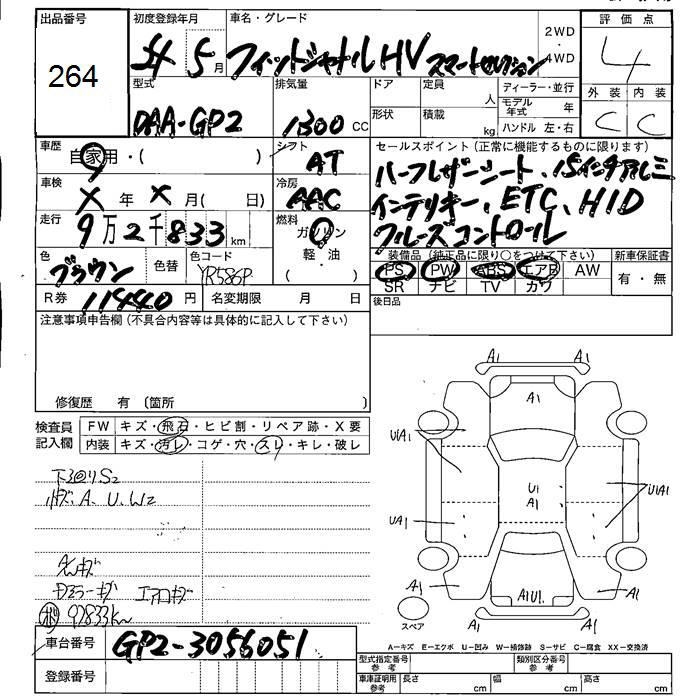 出品番号 初度登録年月 車名・グレード 2WD・4WD 評価点
264 5月 フィットシャトルHV スマートセレクション 4
型式 排気量 ドア 定員 人 ディーラー・並行 外装 内装
DAA-GP2 1300cc 形状 積載 kg モデル年式 年 ハンドル 左・右 C C
車歴 自家用・( ) シフト AT セールスポイント(正常に機能するものに限ります)
車検 X年X月( 日) 冷房 AAC ハーフレザーシート、15インチアルミ
走行 9万2千833km 燃料 ガソリン・軽・油( ) インテリキー、ETC、HID
クルーズコントロール
色 ブラウン 色替 色コード YR586P 装備品(純正品に限り○をつけて下さい) 新車保証書
PS PW ABS エアB AW 有・無
R券 11440円 名変期限 月 日 SR ナビ TV カワ
後日品
注意事項申告欄(不具合内容等は具体的に記入して下さい)
修復歴 有 〔箇所 〕
検査員記入欄 FW キズ・飛石・ヒビ割・リペア跡・X要
内装 キズ・汚レ・コゲ・穴・スレ・キレ・破レ
A1 A1
A1
U1A1
U1 A1
U1A1
UA1
A1U1
A1 A1
A1 A1
スペア
下回りS2
A、U、W2
エアロキズ
92833km
A=キズ E=エクボ U=凹み W=補修跡 S=サビ C=腐食 XX=交換済
車台番号 GP2-3056051
型式指定番号 参考 類別区分番号 参考
登録番号 車庫証明用 参考 長さ cm 幅 cm 高さ cm